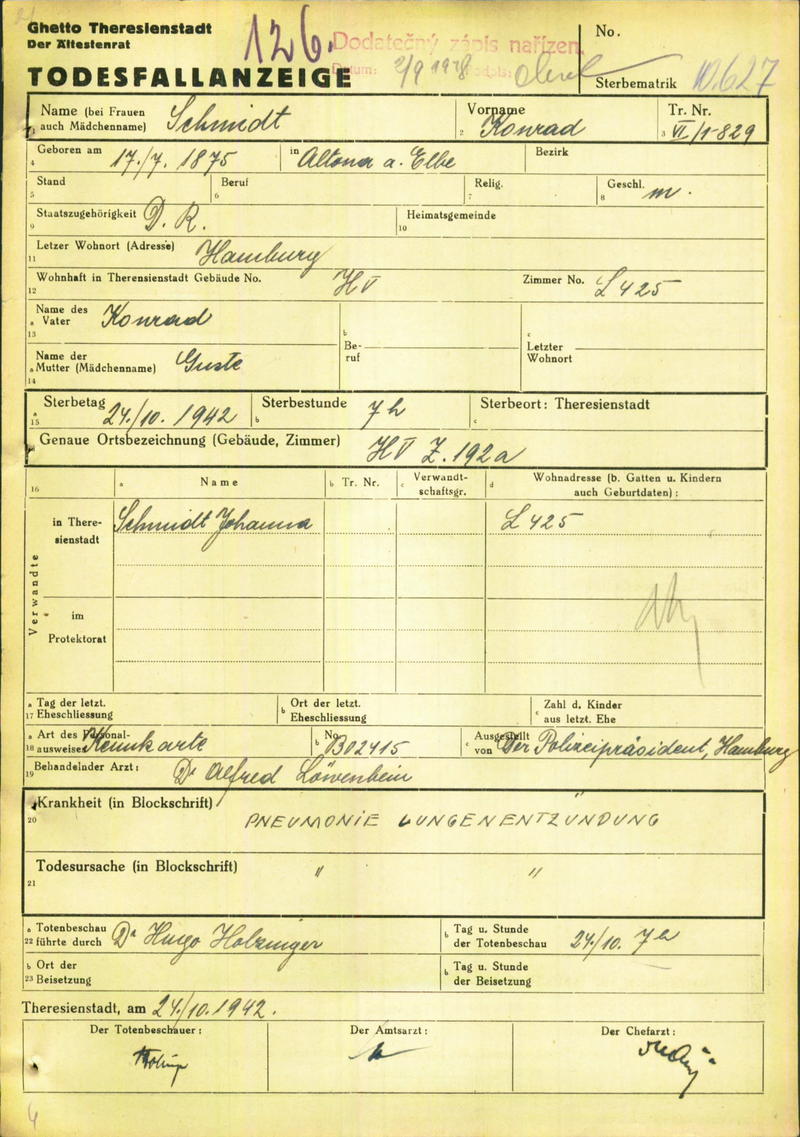 Ghetto Theresienstadt
Der Ältestenrat
TODESFALLANZEIGE
126.
Dodatečný zápis nařízen.
Datum: 2/9 1948
No.
Sterbematrik 10.627
Name (bei Frauen auch Mädchenname) Schmidt
1
Vorname Konrad
2
Tr. Nr. VI/1-829
3
Geboren am 17./7. 1875
4
in Altona a. Elbe
Bezirk
Stand
5
Beruf
6
Relig.
7
Geschl. m.
8
Staatszugehörigkeit D. R.
9
Heimatsgemeinde
10
Letzer Wohnort (Adresse) Hamburg
11
Wohnhaft in Therensienstadt Gebäude No. HV
12
Zimmer No. L 425
Name des
a Vater Konrad
13
b Be-
ruf
c Letzter
Wohnort
Name der
a Mutter (Mädchenname) Guste
14
a Sterbetag 24./10. 1942
15
b Sterbestunde 7 h
c Sterbeort: Theresienstadt
Genaue Ortsbezeichnung (Gebäude, Zimmer) HV Z. 192a
16
a Name
b Tr. Nr.
c Verwandt-
schaftsgr.
d Wohnadresse (b. Gatten u. Kindern
auch Geburtdaten):
Verwandte
in There-
sienstadt
Schmidt Johanna
L 425
im
Protektorat
a Tag der letzt.
17 Eheschliessung
b Ort der letzt.
Eheschliessung
c Zahl d. Kinder
aus letzt. Ehe
a Art des Personal-
18 ausweises Kennkarte
b No. B02415
c Ausgestellt
von Der Polizeipräsident, Hamburg
Behandelnder Arzt: Dr Alfred Löwenhein
19
Krankheit (in Blockschrift)
20
PNEUMONIE LUNGENENTZÜNDUNG
Todesursache (in Blockschrift) " "
21
a Totenbeschau
22 führte durch Dr Hugo Holzinger
b Tag u. Stunde
der Totenbeschau 24./10. 7h
b Ort der
23 Beisetzung
b Tag u. Stunde
der Beisetzung
Theresienstadt, am 24./10. 1942.
Der Totenbeschauer:
Der Amtsarzt:
Der Chefarzt:
4